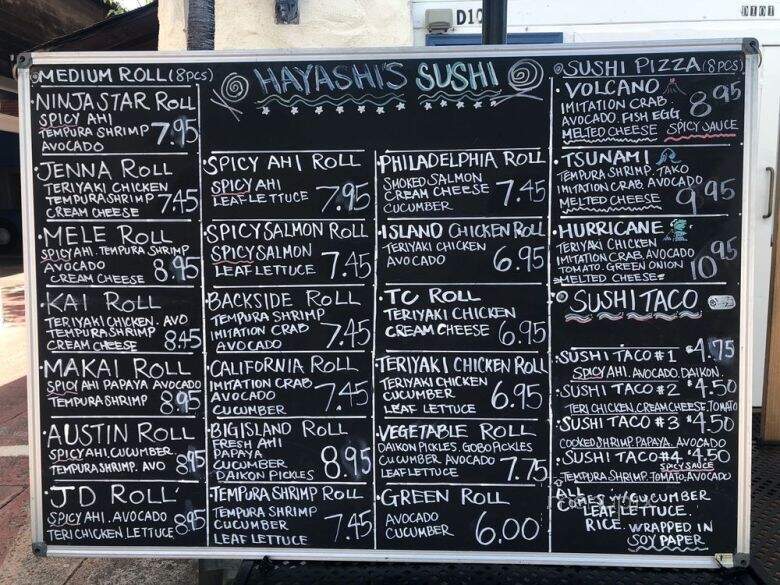 D10
0101
MEDIUM ROLL (8pcs)
NINJA STAR ROLL
SPICY AHI
TEMPURA SHRIMP 7.95
AVOCADO
JENNA ROLL
TERIYAKI CHICKEN
TEMPURA SHRIMP 7.45
CREAM CHEESE
MELE ROLL
SPICY AHI. TEMPURA SHRIMP
AVOCADO 8.95
CREAM CHEESE
KAI ROLL
TERIYAKI CHICKEN. AVO
TEMPURA SHRIMP 8.45
CREAM CHEESE
MAKAI ROLL
SPICY AHI PAPAYA AVOCADO
TEMPURA SHRIMP 8.95
AUSTIN ROLL
SPICY AHI. CUCUMBER
TEMPURA SHRIMP. AVO 8.95
JD ROLL
SPICY AHI. AVOCADO 8.95
TERI CHICKEN LETTUCE
HAYASHI'S SUSHI
SPICY AHI ROLL
SPICY AHI
LEAF LETTUCE 7.95
SPICY SALMON ROLL
SPICY SALMON
LEAF LETTUCE 7.45
BACKSIDE ROLL
TEMPURA SHRIMP
IMITATION CRAB 7.45
AVOCADO
CALIFORNIA ROLL
IMITATION CRAB
AVOCADO 7.45
CUCUMBER
BIG ISLAND ROLL
FRESH AHI
PAPAYA
CUCUMBER 8.95
DAIKON PICKLES
TEMPURA SHRIMP ROLL
TEMPURA SHRIMP
CUCUMBER 7.45
LEAF LETTUCE
PHILADELPHIA ROLL
SMOKED SALMON
CREAM CHEESE 7.45
CUCUMBER
ISLAND CHICKEN ROLL
TERIYAKI CHICKEN
AVOCADO 6.95
TC ROLL
TERIYAKI CHICKEN
CREAM CHEESE 6.95
TERIYAKI CHICKEN ROLL
TERIYAKI CHICKEN
CUCUMBER 6.95
LEAF LETTUCE
VEGETABLE ROLL
DAIKON PICKLES. GOBO PICKLES
CUCUMBER AVOCADO
LEAF LETTUCE 7.75
GREEN ROLL
AVOCADO
CUCUMBER 6.00
SUSHI PIZZA (8PCS)
VOLCANO
IMITATION CRAB 8.95
AVOCADO. FISH EGG
MELTED CHEESE SPICY SAUCE
TSUNAMI
TEMPURA SHRIMP. TAKO
IMITATION CRAB, AVOCADO 9.95
MELTED CHEESE
HURRICANE
TERIYAKI CHICKEN
IMITATION CRAB, AVOCADO 10.95
TOMATO. GREEN ONION
MELTED CHEESE
SUSHI TACO
SUSHI TACO #1 $4.75
SPICY AHI. AVOCADO. DAIKON.
SUSHI TACO #2 $4.50
TERI CHICKEN. CREAM CHEESE. TOMATO
SUSHI TACO #3 $4.50
COOKED SHRIMP. PAPAYA. AVOCADO
SUSHI TACO #4 $4.50
SPICY SAUCE
TEMPURA SHRIMP. TOMATO, AVOCADO
ALL COMES W/ CUCUMBER
LEAF LETTUCE.
RICE. WRAPPED IN
SOY PAPER